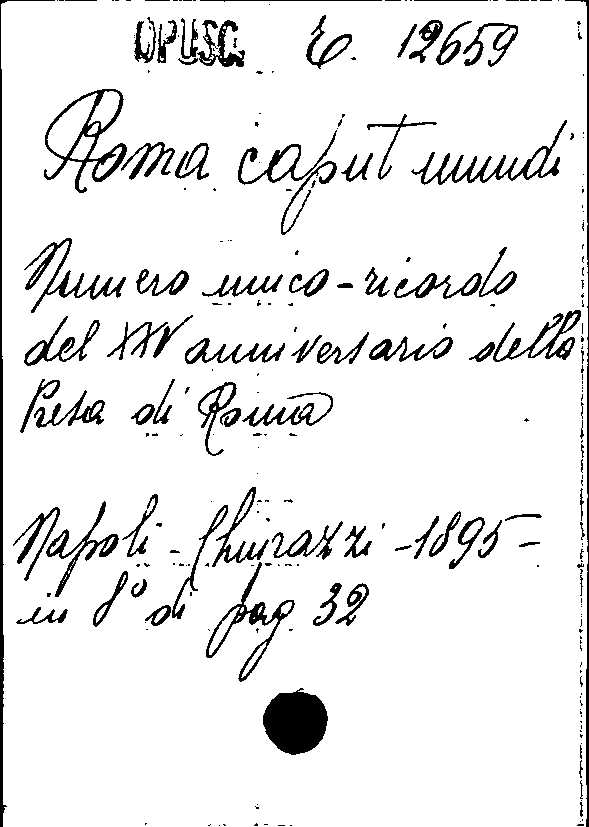 OPUSC. E. 12659
Roma caput mundi
Numero unico-ricordo
del XXV anniversario della
Presa di Roma
Napoli - Chiurazzi - 1895 -
in 8° di pag. 32